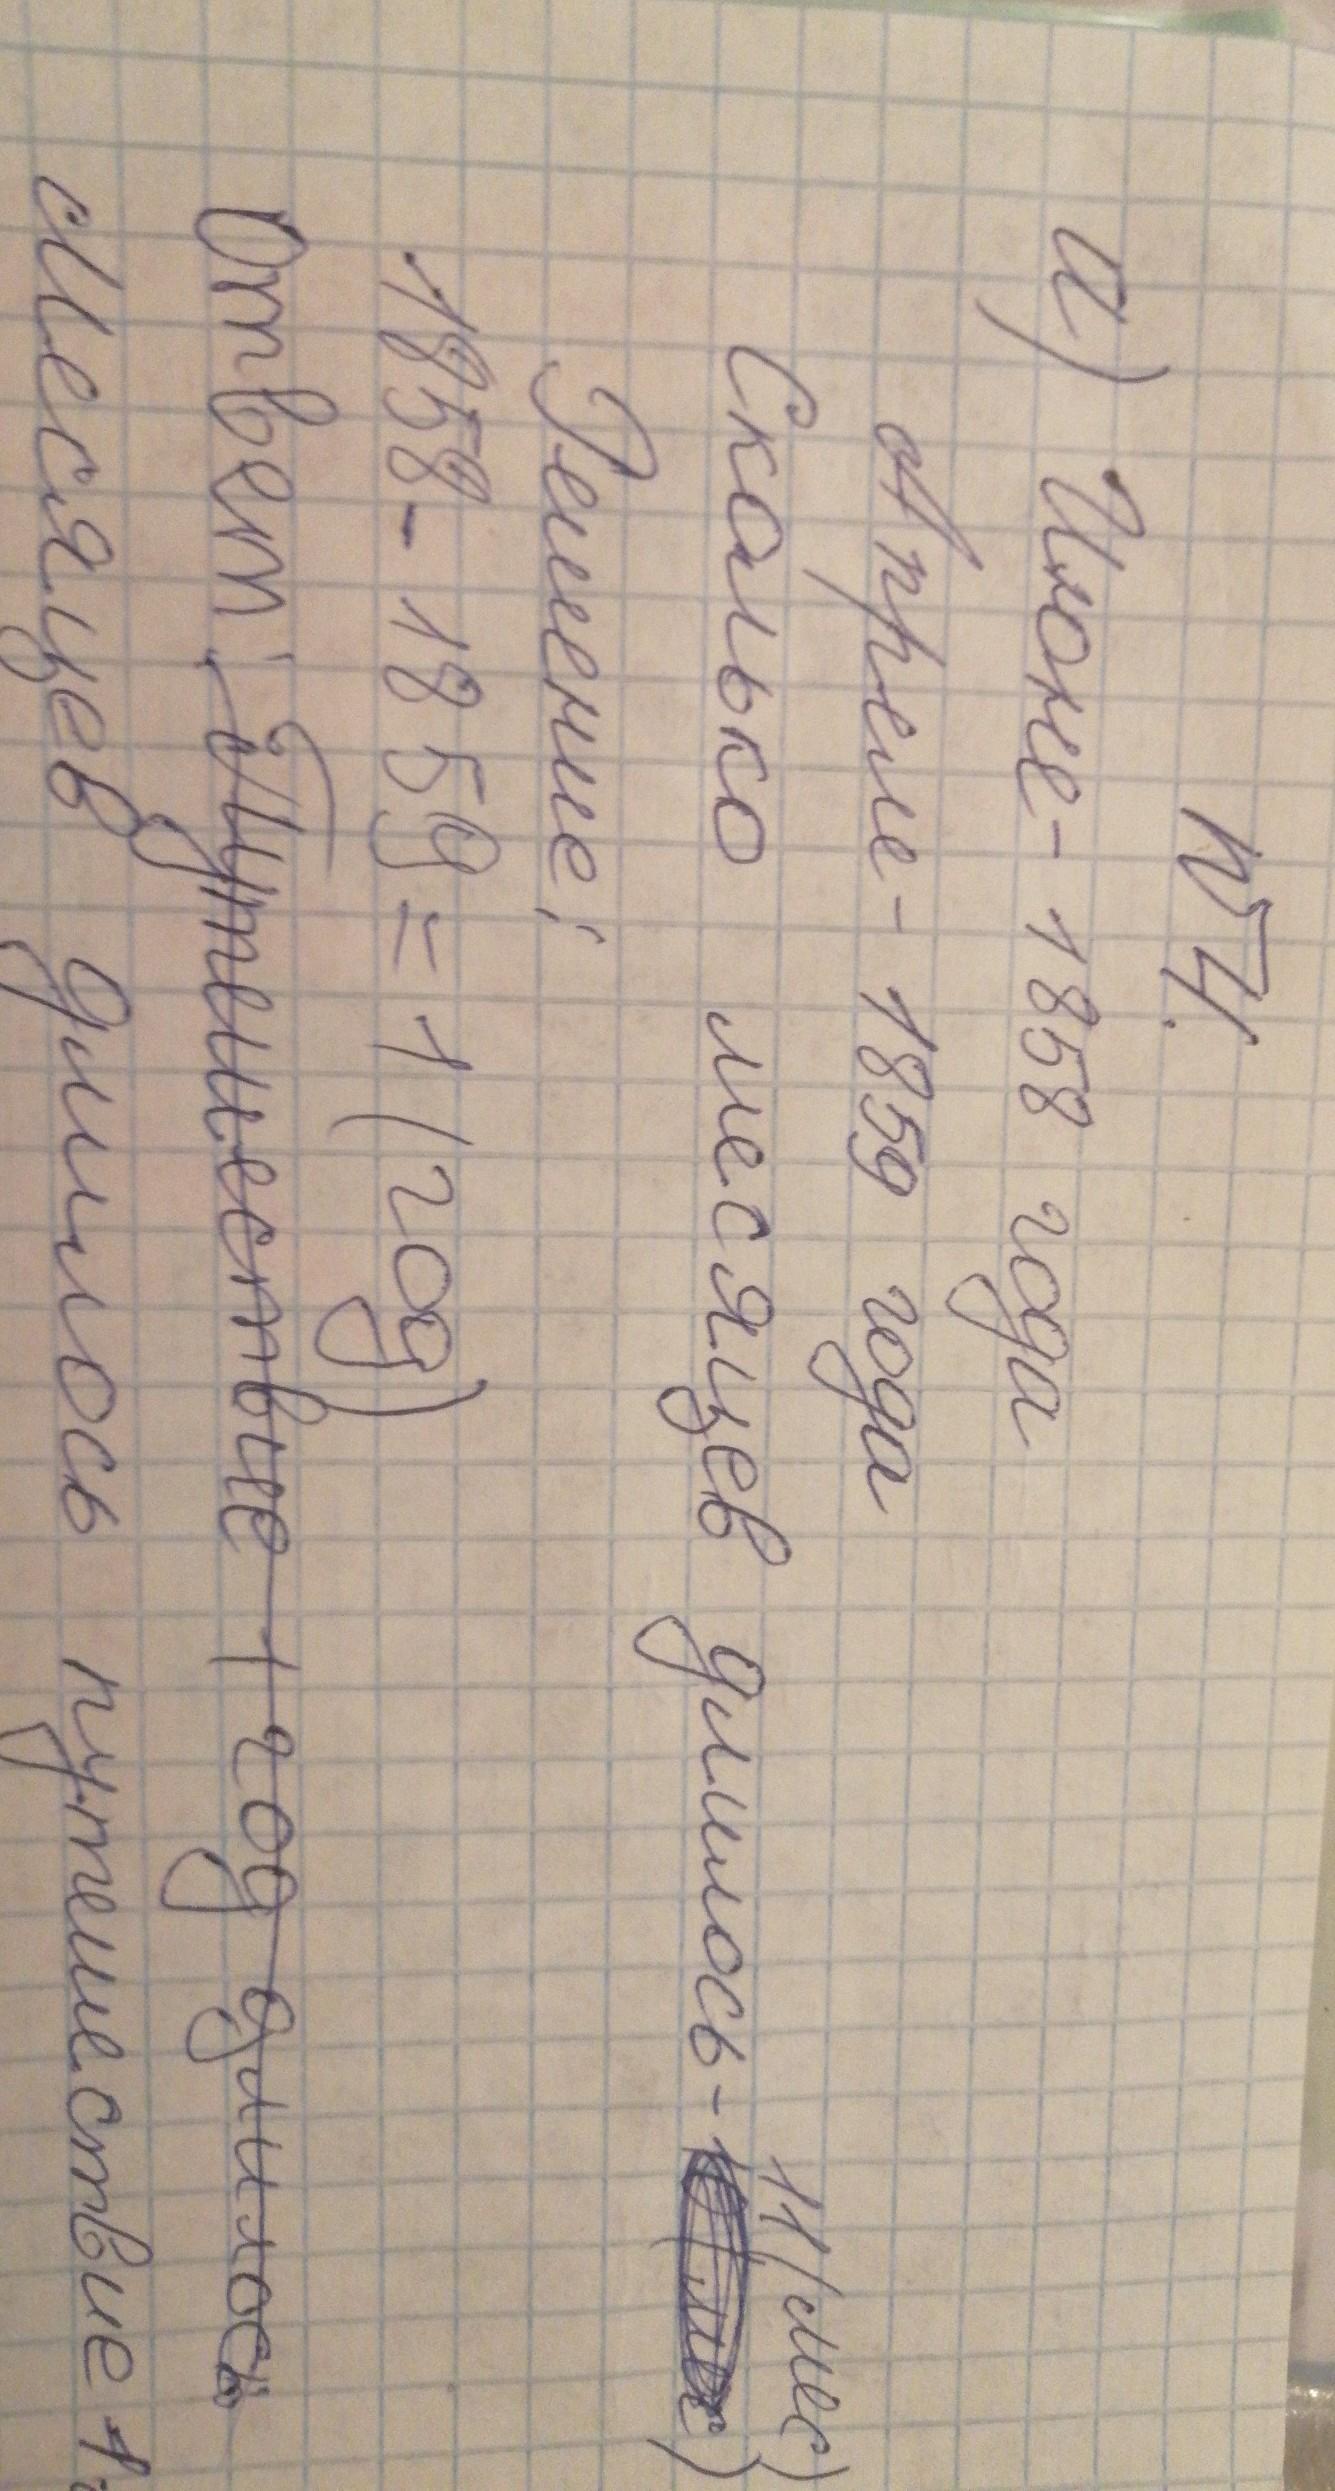 №4.
а) Июне - 1858 года
Апреле - 1859 года
Сколько месяцев длилось - 11(мес)
Решение:
1858 - 1859 = 1 (год)
Ответ: Путешествие 1 год длилось
Месяцев длилось путешествие